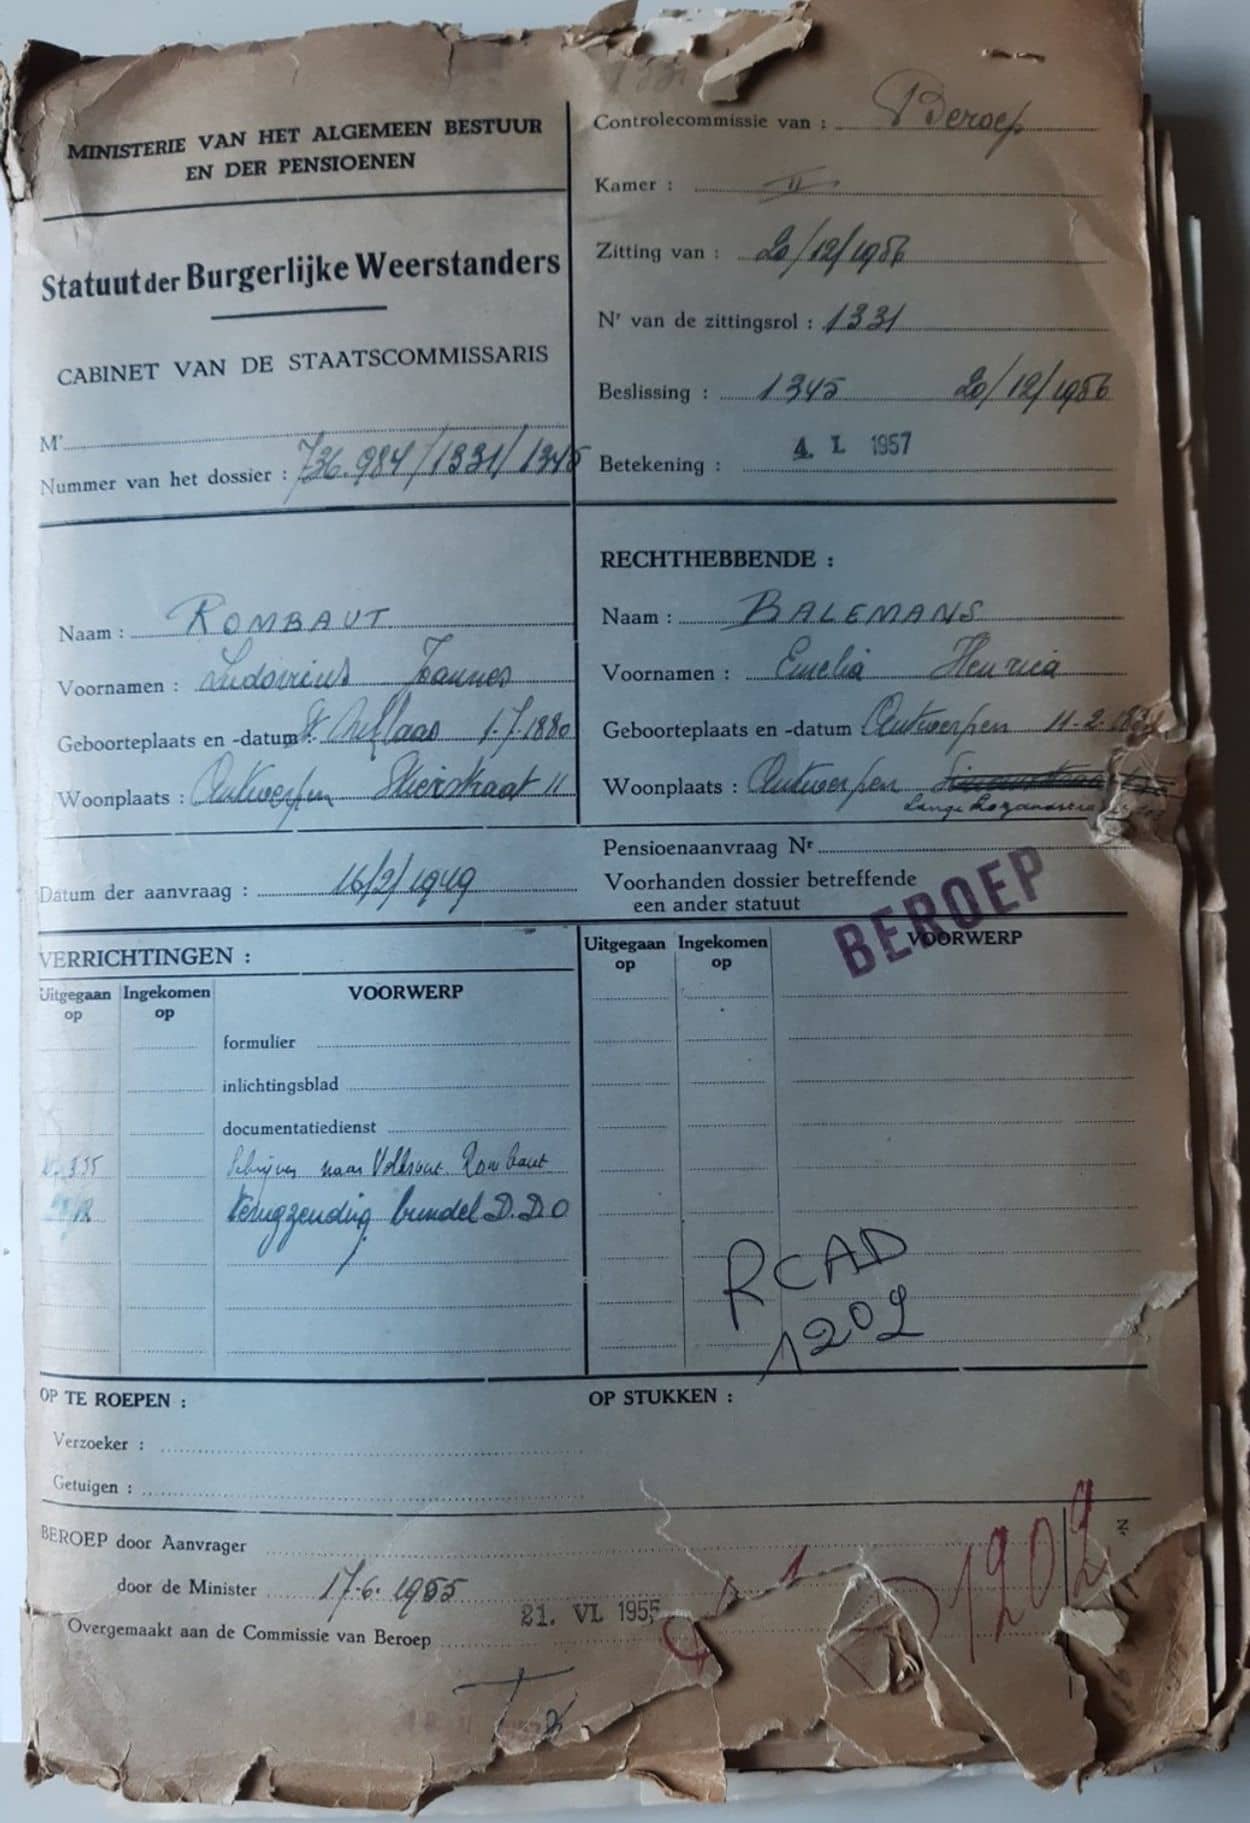 MINISTERIE VAN HET ALGEMEEN BESTUUR
EN DER PENSIOENEN
Statuut der Burgerlijke Weerstanders
CABINET VAN DE STAATSCOMMISSARIS
Mr
Nummer van het dossier : 736.984/1331/1345
Controlecommissie van : Beroep
Kamer : II
Zitting van : 20/12/1956
Nr van de zittingsrol : 1331
Beslissing : 1345 20/12/1956
Betekening : 4. I. 1957
Naam : ROMBAUT
Voornamen : Ludovicus Joannes
Geboorteplaats en -datum : St Niklaas 1.7.1880
Woonplaats : Antwerpen Stierstraat 11
RECHTHEBBENDE :
Naam : BALEMANS
Voornamen : Emelia Henrica
Geboorteplaats en -datum : Antwerpen 11-2-
Woonplaats : Antwerpen
Lange
Datum der aanvraag : 16/2/1949
Pensioenaanvraag Nr
Voorhanden dossier betreffende
een ander statuut
BEROEP
VERRICHTINGEN :
Uitgegaan op Ingekomen op VOORWERP
formulier
inlichtingsblad
documentatiedienst
Schrijven naar Rombaut
Terugzending bundel D.D.O
Uitgegaan op Ingekomen op VOORWERP
RCAD
1202
OP TE ROEPEN :
Verzoeker :
Getuigen :
OP STUKKEN :
BEROEP door Aanvrager
door de Minister 17.6.1955
Overgemaakt aan de Commissie van Beroep 21. VI. 1955
1202